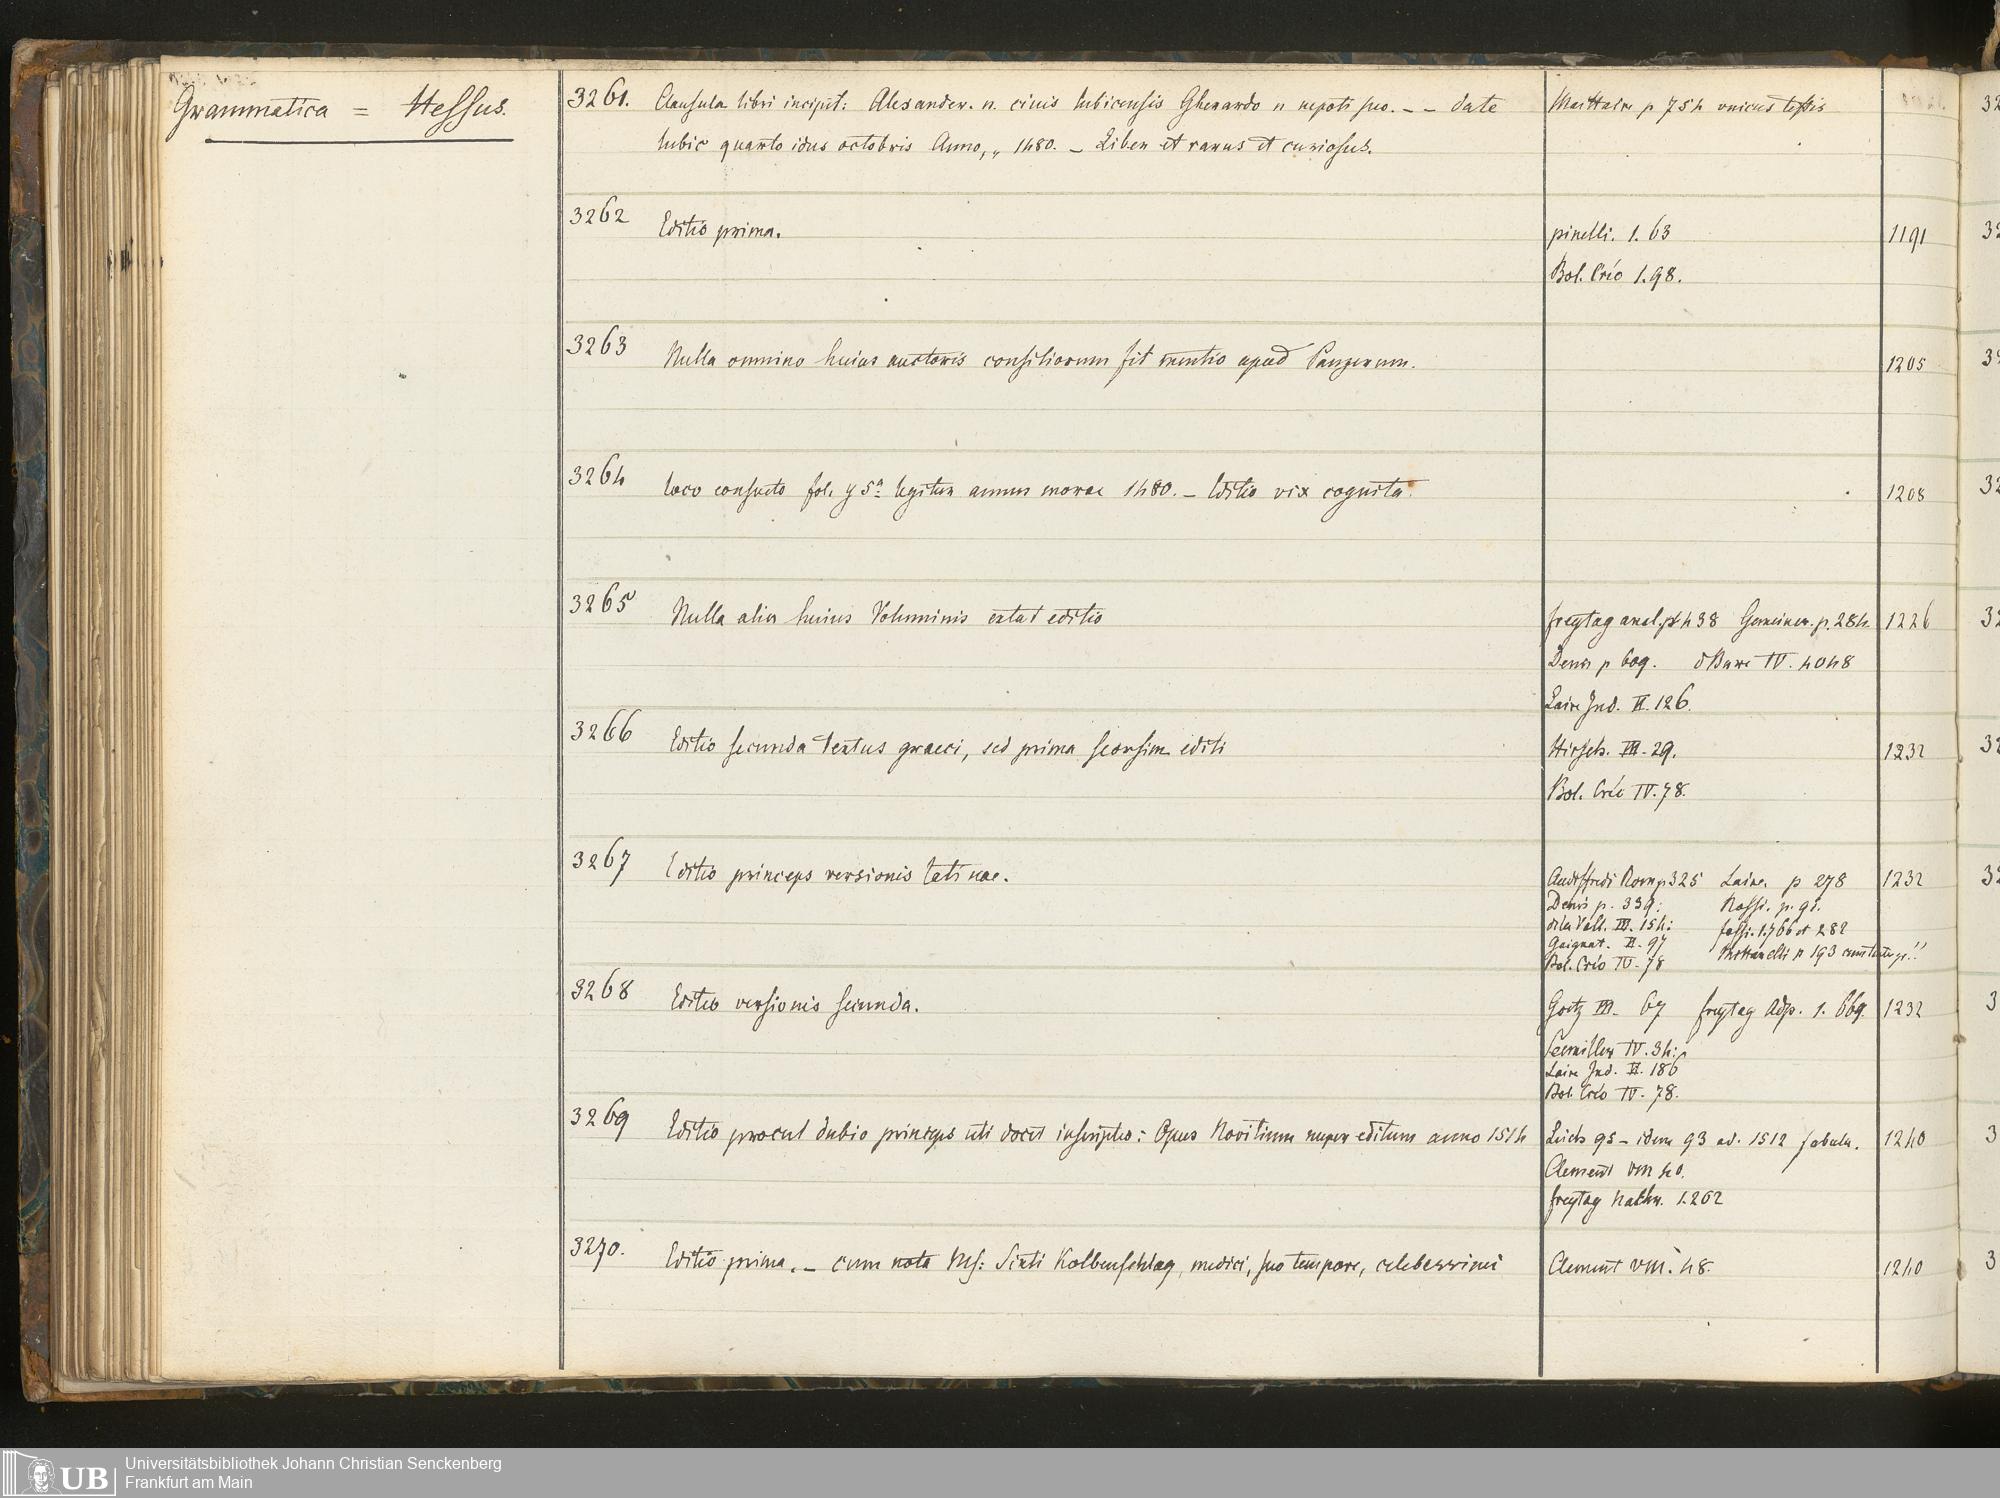 Grammatica = Hessus.
3261. Clausula libri incipit: Alexander. n. ciuis lubicensis Gherardo n nepoti suo. – – date Maittaire p 754 vnicus testis
lubic quarto idus octobris Anno „ 1480. – Liber et rarus et curiosus.
3262 Editio prima. pinelli. 1. 63 1191
Bol. Crio 1. 98.
3263 Nulla omnino huius auctoris consiliorum fit mentio apud Panzerum. 1205
3264 loco consueto fol. y 5a legitur annus morae 1480. – Editio vix cognita. 1208
3265 Nulla alia huius Voluminis extat editio freytag anal. p 438 Gemeiner. p. 284. 1226
Denis p 609. IV. 4048
Laire Ind. II. 126.
3266 Editio secunda textus graeci, sed prima seorsim editi Hirsch. III. 29. 1232
Bol. Crio IV. 78.
3267 Editio princeps versionis latinae. Audiffredi Rom p 325 Laire. p 278 1232
Denis p. 339: Rossi. p. 91.
de la Vall. III. 154: fossi. 1. 766 et 282
Gaignat. II. 97 p 193
Bol. Crio IV. 78
3268 Editio versionis secunda. Goetz III. 67 freytag Adp. 1. 669. 1232
Seemiller IV. 34:
Laire Ind. II. 186
Bol. Crio IV. 78.
3269 Editio procul dubio princeps uti docet inscriptio: Opus Novitium nuper editum anno 1514 Leich 95 – idem 93 ed. 1512 fabula. 1240
Clement VIII 40.
freytag Nachr. 1. 262
3270. Editio prima. – cum nota Ms: Sixti Kolbenschlag, medici, suo tempore, celeberrimi Clement VIII. 48. 1240
UB
Universitätsbibliothek Johann Christian Senckenberg
Frankfurt am Main